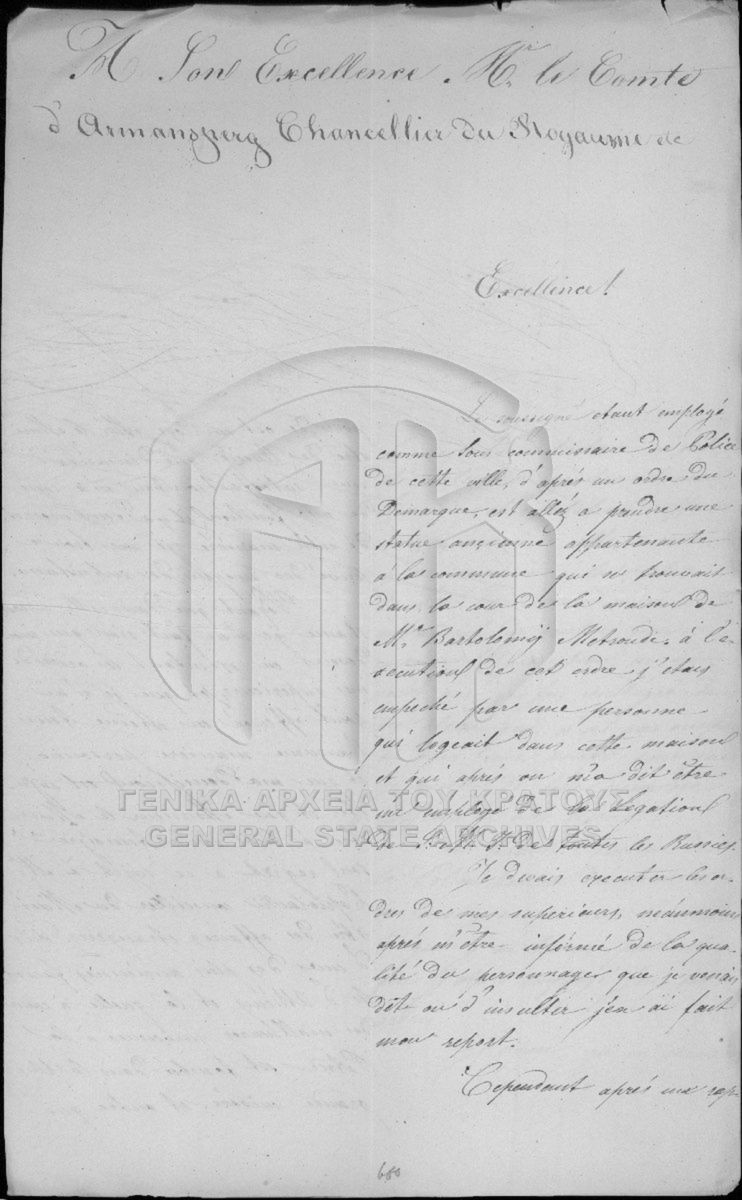 A Son Excellence Mr. le Comte
d'Armansperg Chancellier du Royaume de
Excellence!
Le sousigné etant employé
comme Sous commissaire de Police
de cette ville, d'aprés un ordre du
Demarque, est alléz a prendre une
statue ancienne appartenante
à la commune qui se trouvait
dans la cour de la maison de
Mr. Bartolomÿ à l'e-
xecution de cet ordre j'etais
empeché par une personne
qui logeait dans cette maison
et qui aprés on m'a dit être
un employé de la Legation
de S. M. I. de toutes les Russies.
Je devais executer les or-
dres de mes superieurs, néanmoins
aprés m'être informé de la qua-
lité du personnage que je venais
d'insulter j'en ai fait
mon report.
Cependant aprés un rap-
ΓΕΝΙΚΑ ΑΡΧΕΙΑ ΤΟΥ ΚΡΑΤΟΥΣ
GENERAL STATE ARCHIVES
680